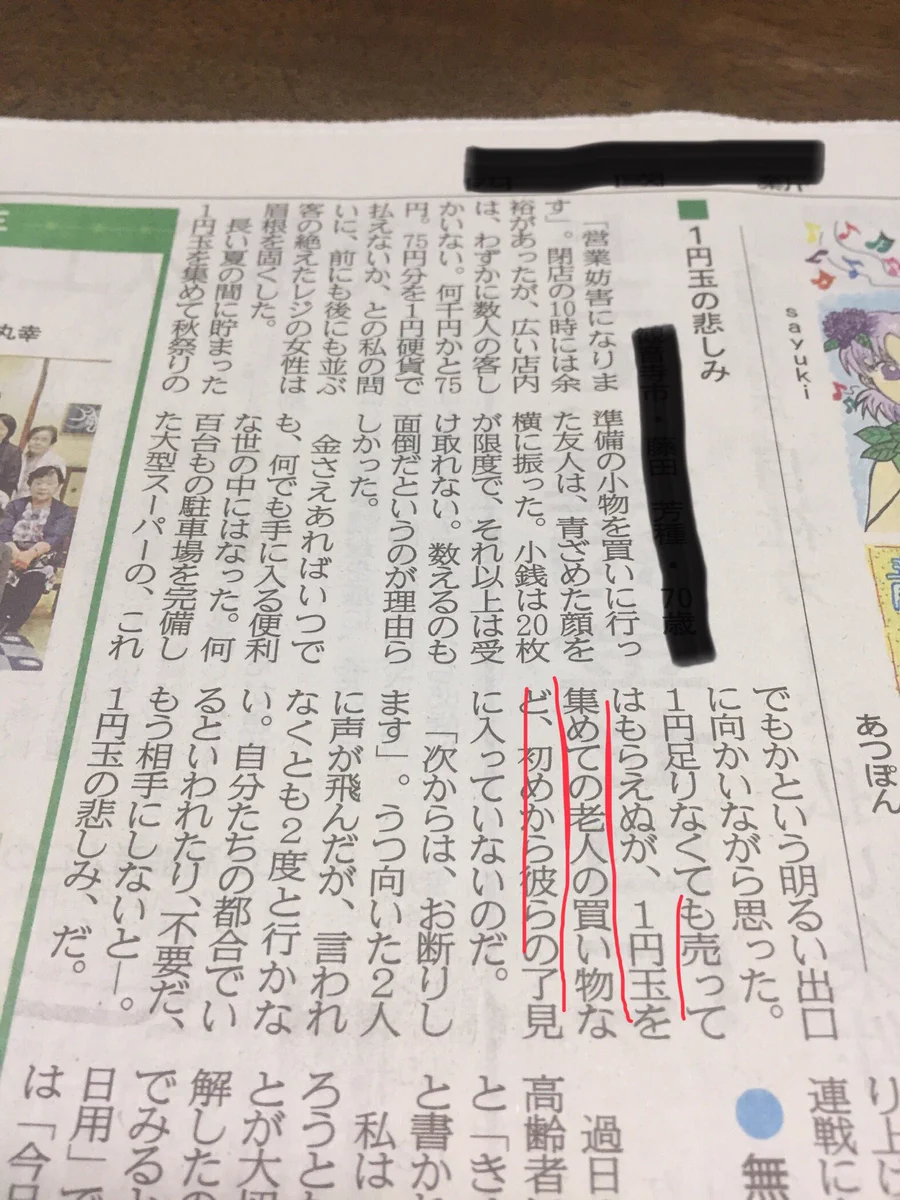 sayuki
あつぽん
■1円玉の悲しみ
「営業妨害になりま
す」。閉店の10時には余
裕があったが、広い店内
は、わずかに数人の客し
かいない。何千円かと75
円。75円分を1円硬貨で
払えないか、との私の問
いに、前にも後にも並ぶ
客の絶えたレジの女性は
眉根を固くした。
長い夏の間に貯まった
1円玉を集めて秋祭りの
準備の小物を買いに行っ
た友人は、青ざめた顔を
横に振った。小銭は20枚
が限度で、それ以上は受
け取れない。数えるのも
面倒だというのが理由ら
しかった。
金さえあればいつで
も、何でも手に入る便利
な世の中にはなった。何
百台もの駐車場を完備し
た大型スーパーの、これ
でもかという明るい出口
に向かいながら思った。
1円足りなくても売って
はもらえぬが、1円玉を
集めての老人の買い物な
ど、初めから彼らの了見
に入っていないのだ。
「次からは、お断りし
ます」。うつ向いた2人
に声が飛んだが、言われ
なくとも2度と行かな
い。自分たちの都合でい
るといわれたり、不要だ、
もう相手にしないと―。
1円玉の悲しみ、だ。
丸幸
り上
連戦に
無
過日
高齢者
と「き
と書か
私は
ろうと
とが大
解した
でみる
日用」で
は「今日